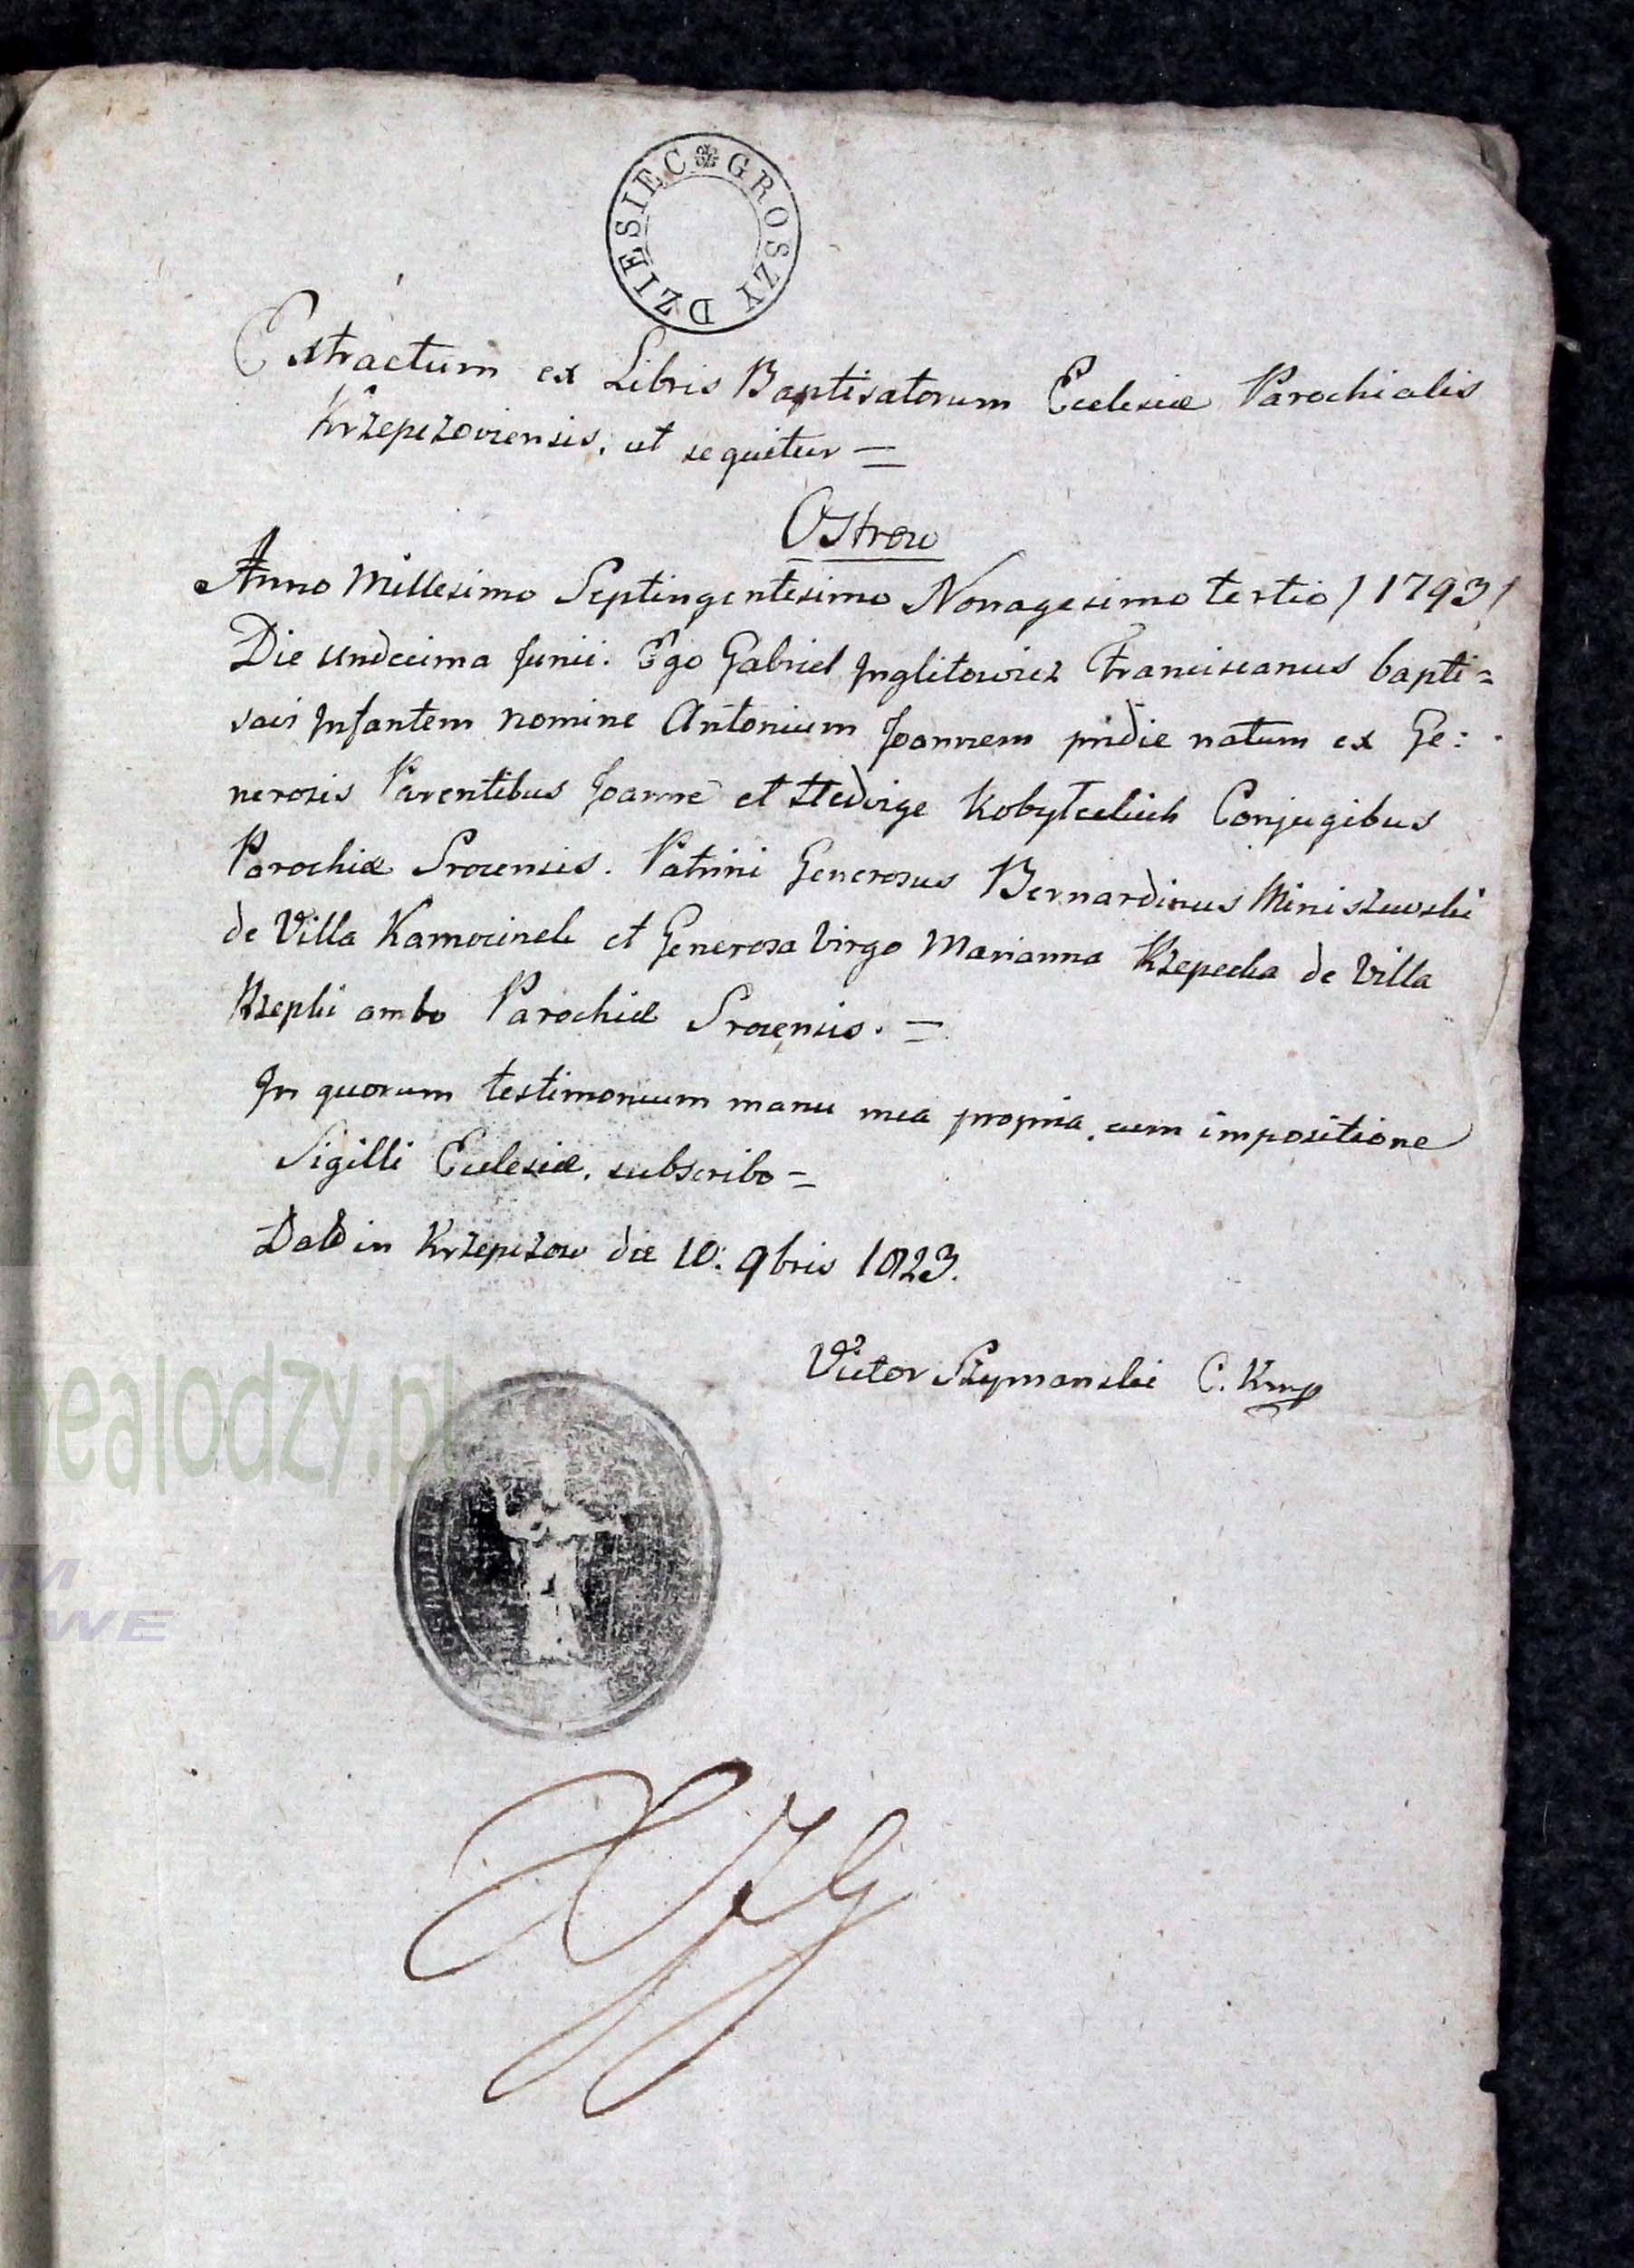 GROSZY DZIESIEC
Extractum ex Libris Baptisatorum Ecclesiæ Parochialis
Krzepczoviensis, ut sequitur =
Ostrow
Anno Millesimo Septingentesimo Nonagesimo tertio / 1793 /
Die undecima Junii. Ego Gabriel Inglitowicz Franciscanus bapti=
savi Infantem nomine Antonium Joannem pridie natum ex Ge:
nerosis Parentibus Joanne et Hedvige Kobyłeckich Conjugibus
Parochiæ Srocensis. Patrini Generosus Bernardinus Miniszewski
de Villa Kamocinek et Generosa Virgo Marianna Rzepecka de Villa
Rzepki ambo Parochiæ Srocensis. =
In quorum testimonium manu mea propria, cum impositione
Sigilli Ecclesiæ, subscribo =
in Krzepczow die 10. 9bris 1823.
Victor Szymanski C. Kmp
nealodzy.pl
OWE